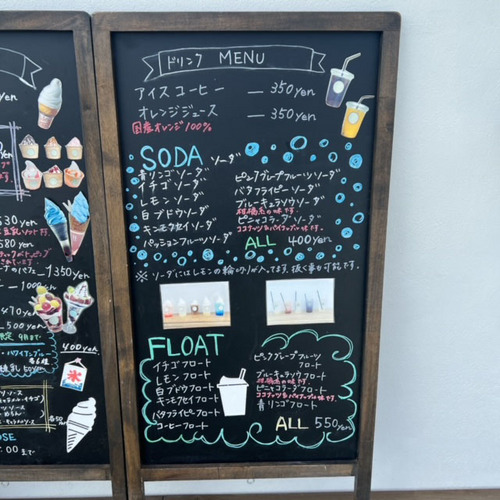 ドリンク MENU
アイスコーヒー — 350yen
オレンジジュース — 350yen
国産オレンジ100%
SODA ソーダ
青リンゴソーダ
イチゴソーダ
レモンソーダ
白ブドウソーダ
キンモクセイソーダ
パッションフルーツソーダ
ピンクグレープフルーツソーダ
バタフライピーソーダ
ブルーキュラソウソーダ
柑橘系の味です。
ピニャコラーダソーダ
ココナッツ&パイナップル味です。
ALL 400yen
※ソーダにはレモンの輪切りが入ってます。抜く事も可能です。
FLOAT
イチゴフロート
レモンフロート
白ブドウフロート
キンモクセイフロート
バタフライピーフロート
コーヒーフロート
ピンクグレープフルーツ
フロート
ブルーキュラソウフロート
柑橘系の味です。
ピニャコラーダフロート
ココナッツ&パイナップル味です。
青リンゴフロート
ALL 550yen
yen
530yen
580yen
1350yen
1000yen
500yen
400yen
氷